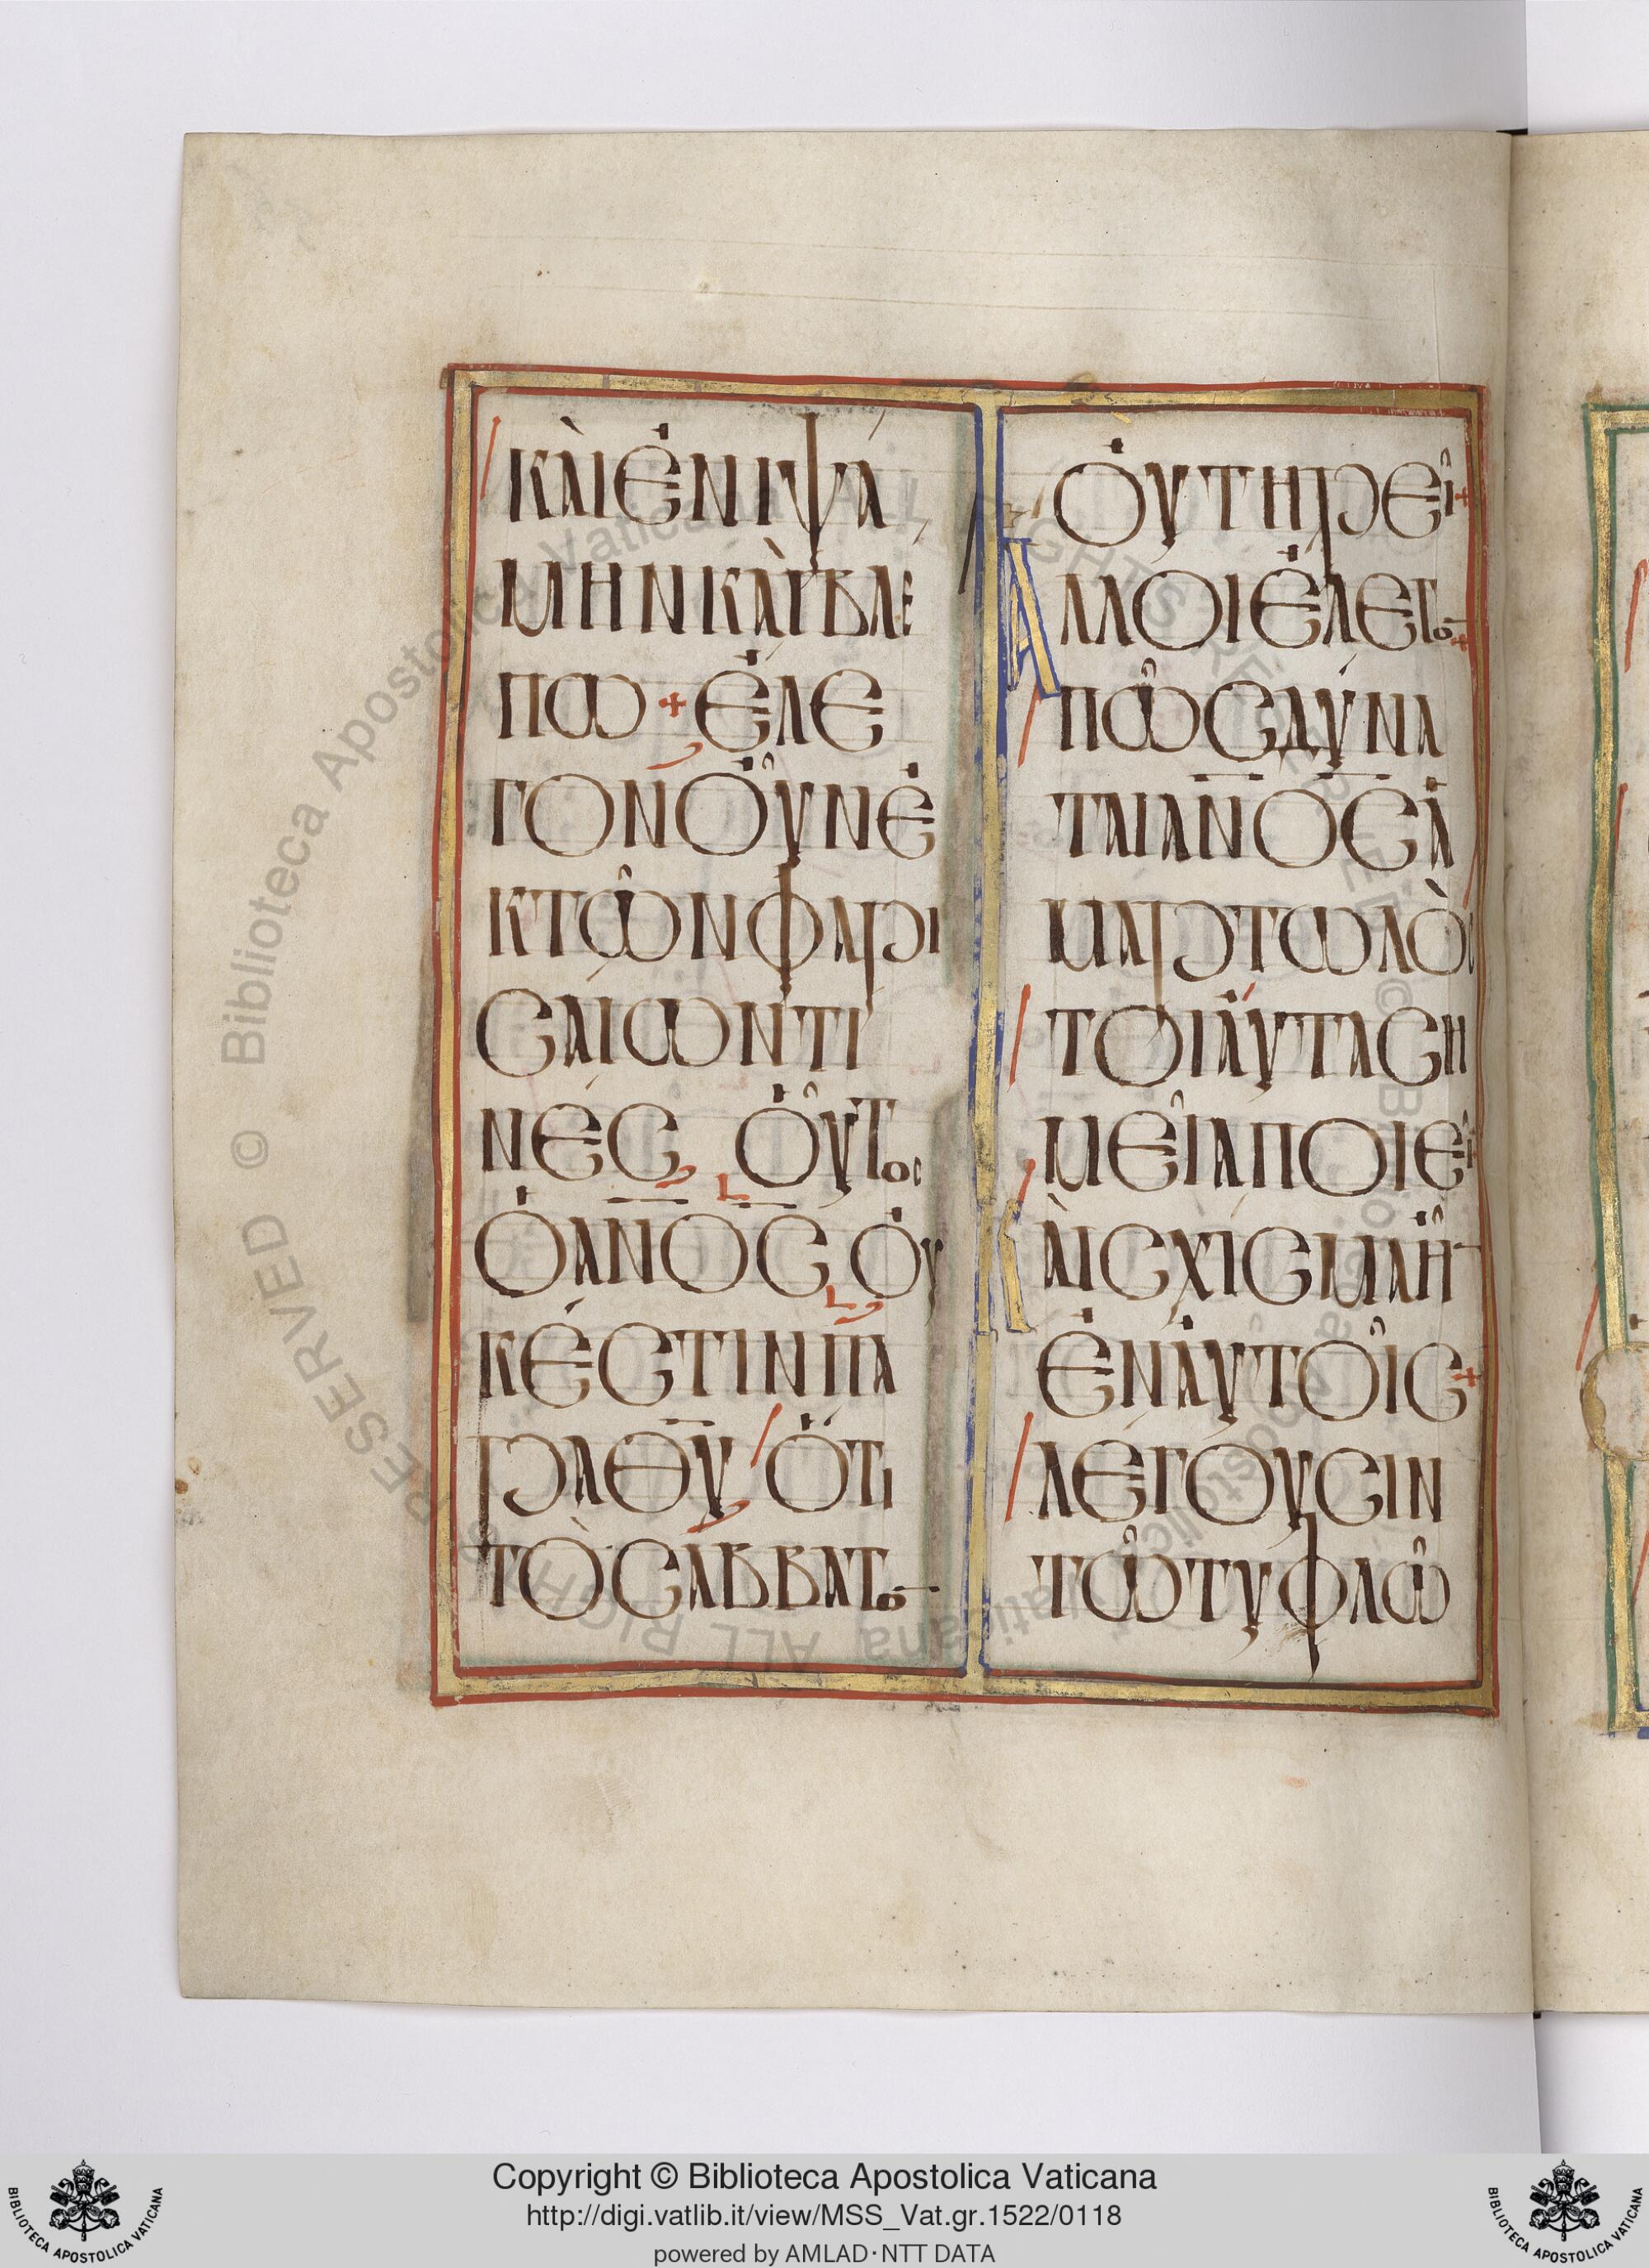 ΚᾺΙἘΝΙΨΆ
ΜΗΝΚᾺΙΒΛΕ
ΠΩ + ἜΛΕ
ΓΟΝΟὖΝἘ
ΚΤῶΝΦΑΡΙ
ΣΑΊΩΝΤΙ
ΝΈΣ ΟὗΤΟΣ
ὉΑΝΟΣ Οὐ
ΚΈΣΤΙΝΠΑ
ΡᾺΘΥ ὍΤΙ
ΤῸΣΆΒΒΑΤΟ
ΟὐΤΗΡΕῖ +
ἌΛΛΟΙἜΛΕΓΟ +
ΠῶΣΔΎΝΑ
ΤΑΙΑΝΟΣἉ
ΜΑΡΤΩΛῸΣ
ΤΟΙΑΎΤΑΣΗ
ΜΕῖΑΠΟΙΕῖ
ΚᾺΙΣΧΊΣΜΑἮ
ἘΝἈΥΤΟῖΣ +
ΛΈΓΟΥΣΙΝ
ΤῶΤΥΦΛῶ
Copyright © Biblioteca Apostolica Vaticana
http://digi.vatlib.it/view/MSS_Vat.gr.1522/0118
powered by AMLAD·NTT DATA
BIBLIOTECA APOSTOLICA VATICANA
BIBLIOTECA APOSTOLICA VATICANA
© Biblioteca Apostolica Vaticana ALL RIGHTS RESERVED © Biblioteca Apostolica Vaticana ALL RIGHTS RESERVED